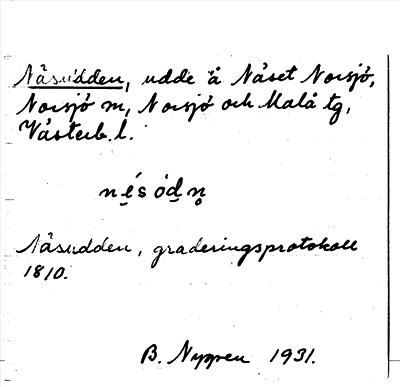 Näsudden, udde å Näset Norsjö,
Norsjö sn, Norsjö och Malå tg,
Västerb. l.
nẹ́só́dṇ
Näsudden, graderingsprotokoll
1810.
B. Nyman 1931.